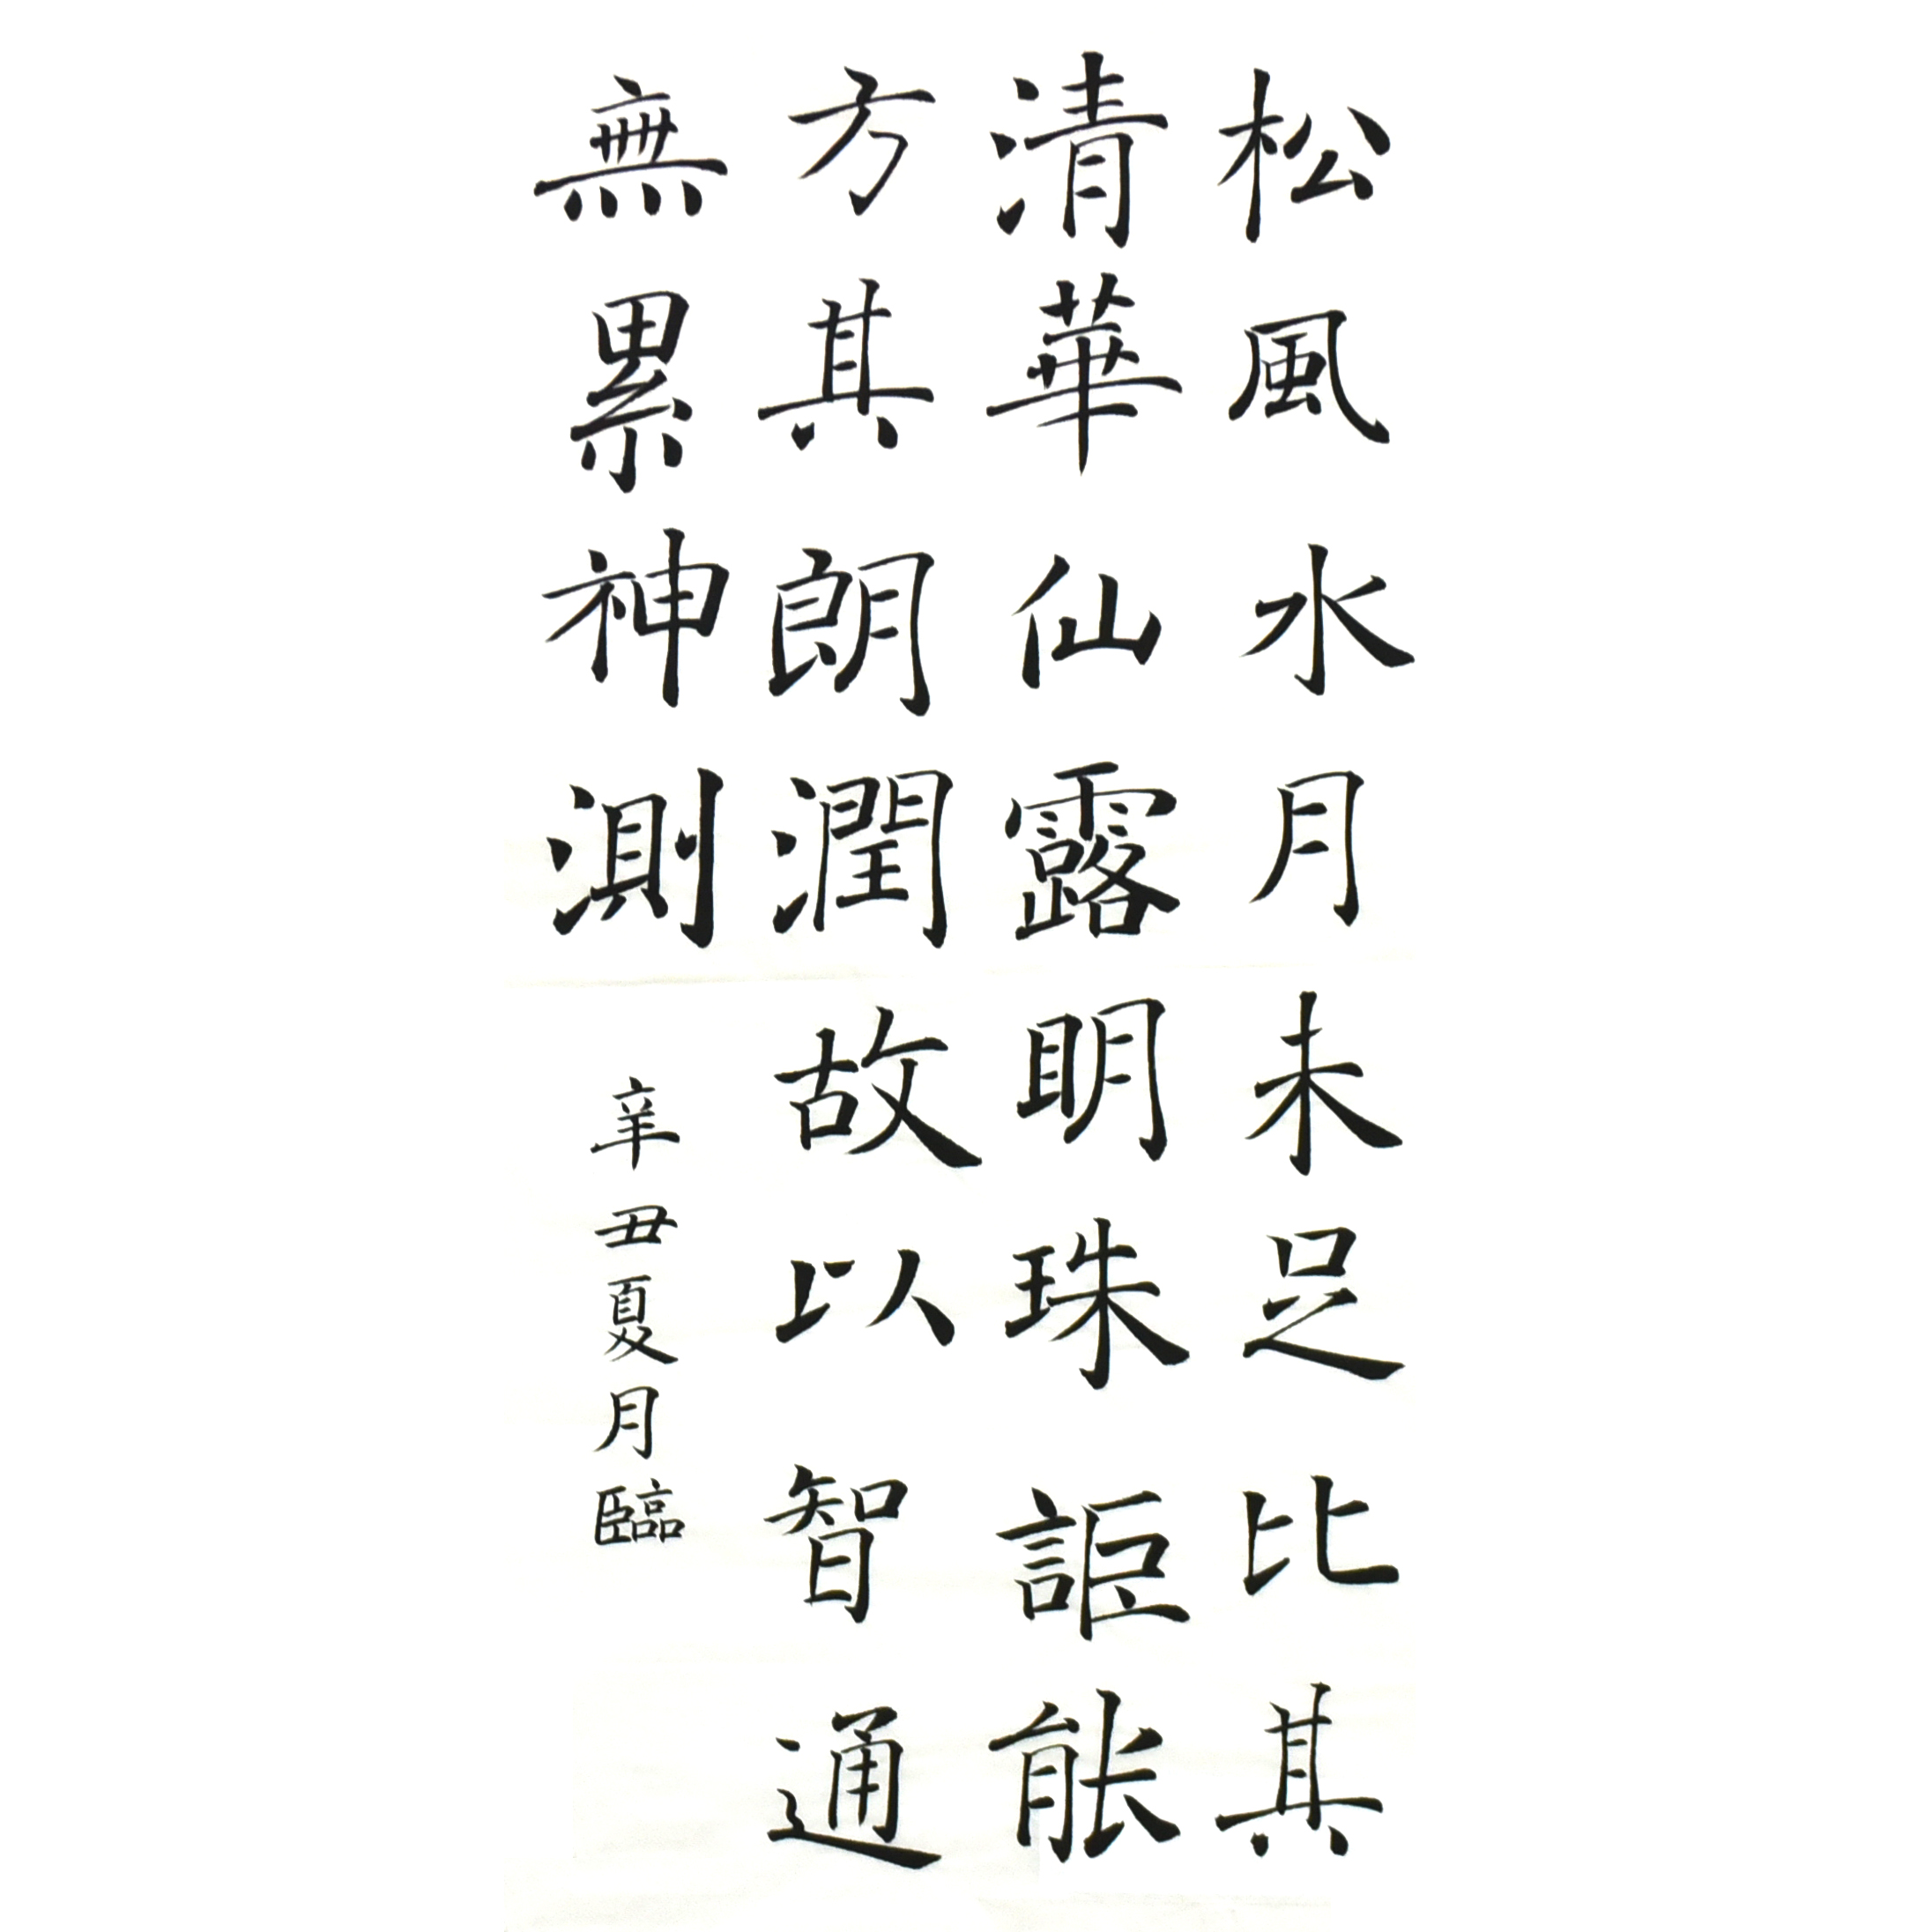 松風水月未足比其
清華仙露明珠詎能
方其朗潤故以智通
無累神測
辛丑夏月臨